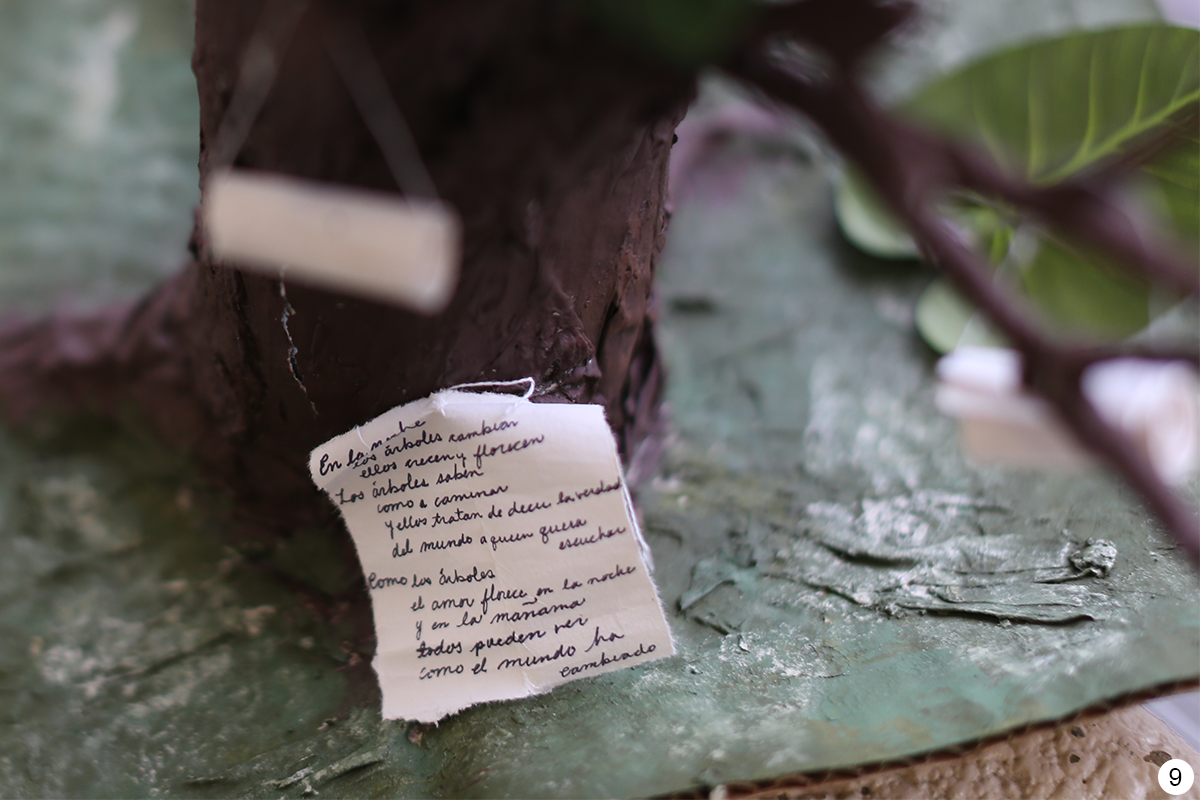 En la noche
los árboles cambian
ellos crecen y florecen
Los árboles saben
como a caminar
y ellos tratan de decir la verdad
del mundo a quien quiera
escuchar
Como los árboles
el amor florece en la noche
y en la mañama
todos pueden ver
como el mundo ha
cambiado
9